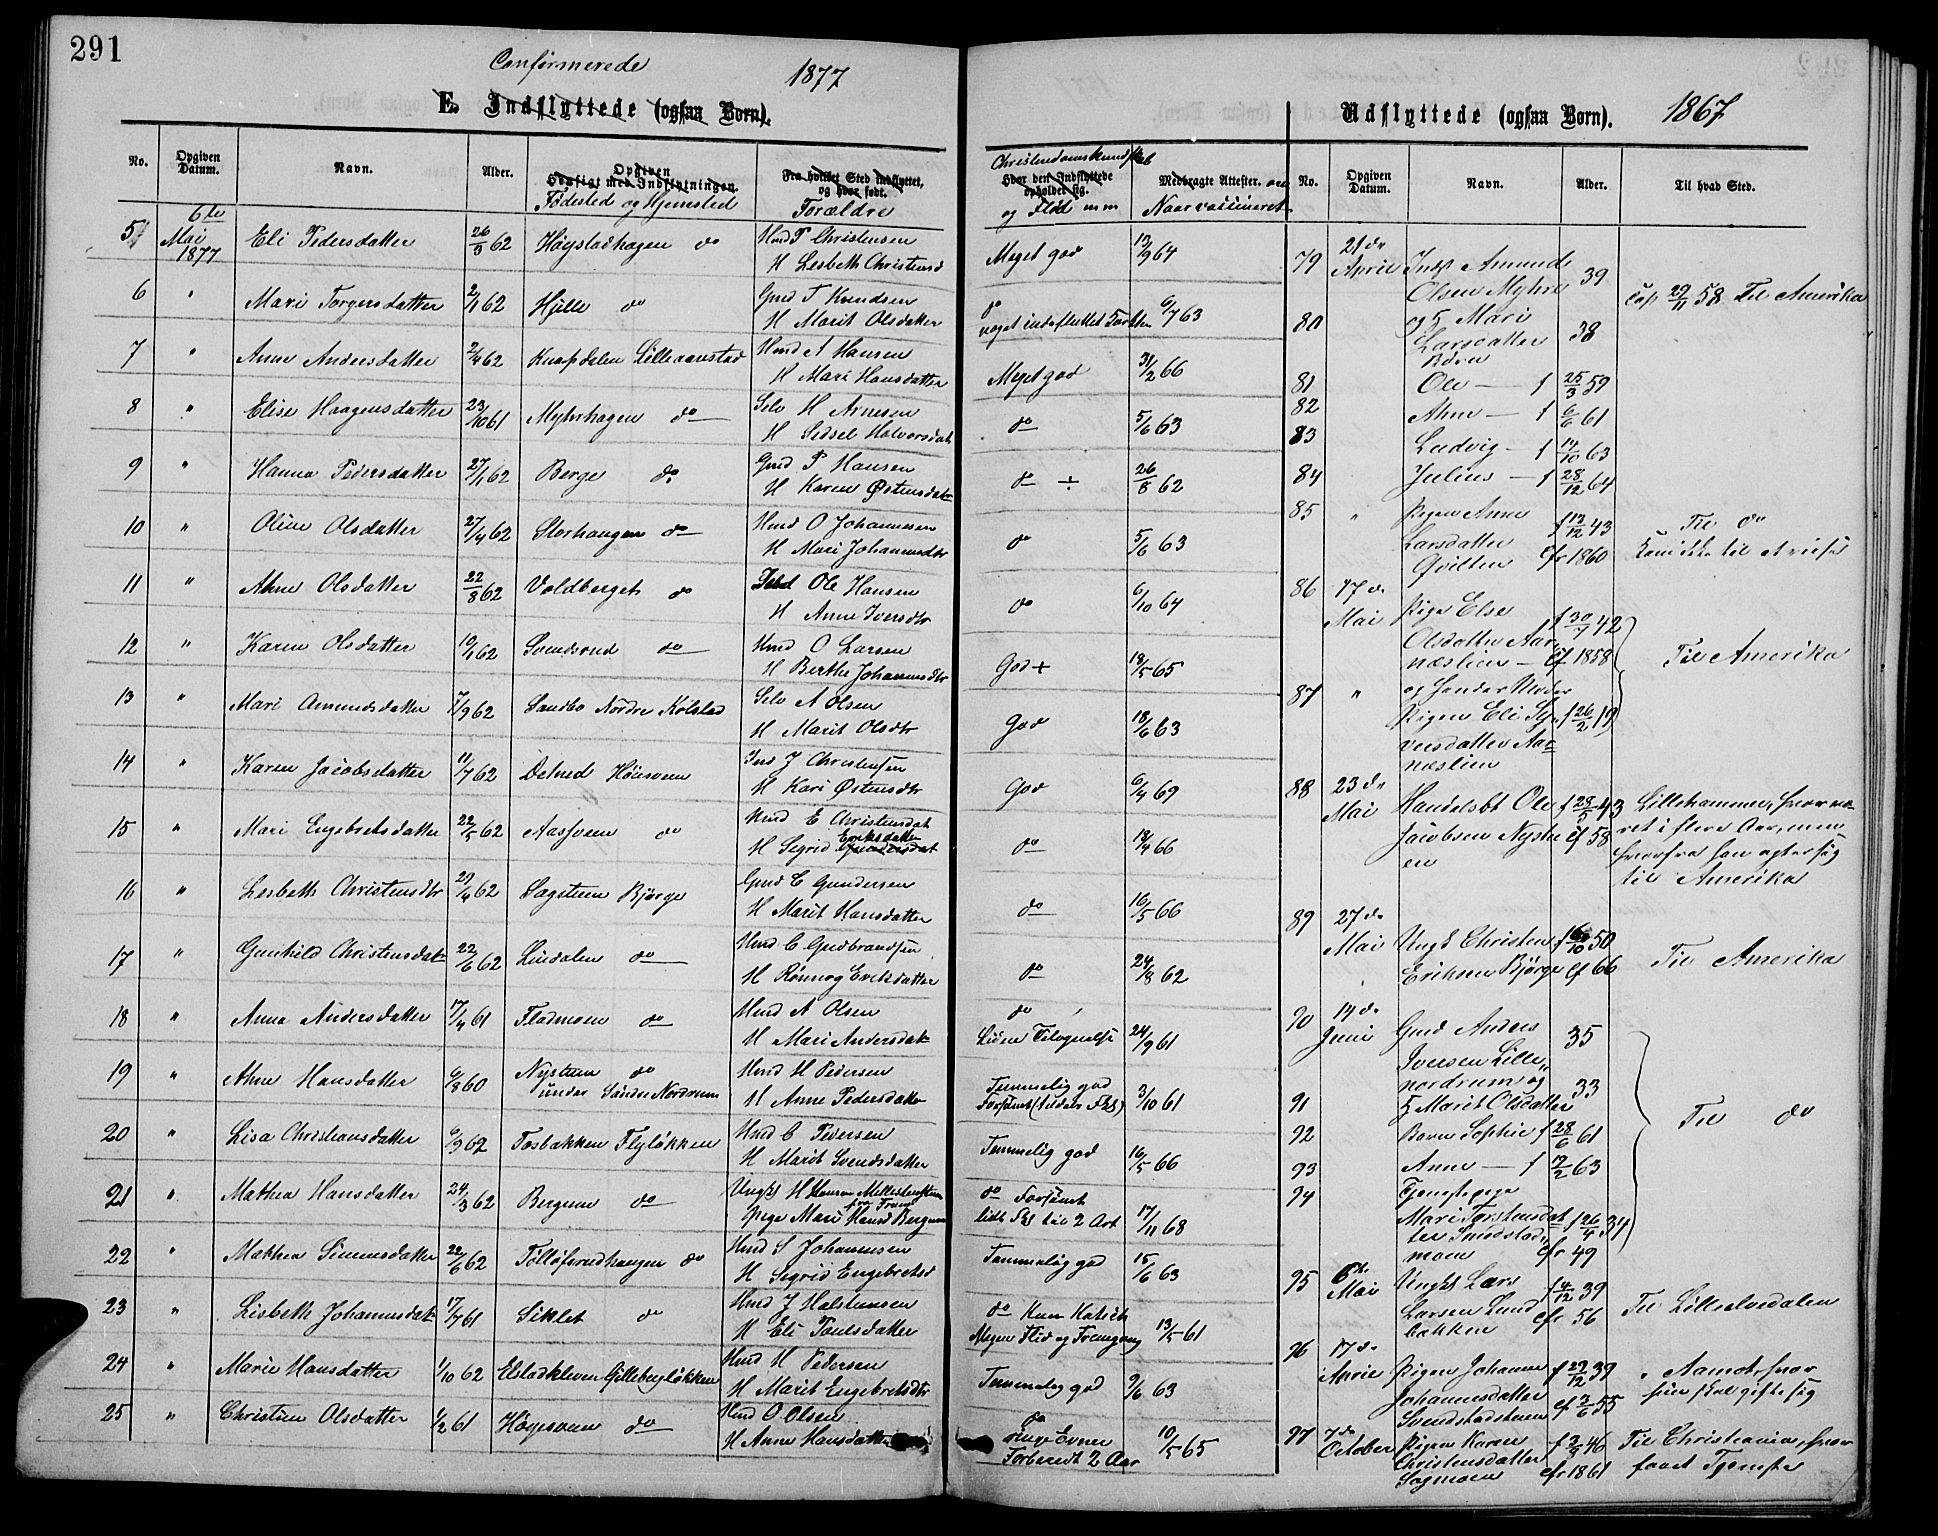 291
Confirmerede 1877
E. Indflyttede (ogsaa Børn).
No. Opgiven Datum. Navn. Alder. Opgiven Hensigt med Indflytningen. Fra hvilket Sted indflyttet, og hvor født.
Fødested og Hjemsted Forældre
Christendomskundskab
Hvor den Indflyttede opholder sig. Medbragte Attester.
og Flid m m Naar vaccineret
5 6te Mai 1877 Eli Pedersdatter 26/8 62 Høystadhagen do Hmd P Christensen
H Lisbeth Christensd Meget god 13/9 64
6 " Mari Torgersdatter 2/1 62 Hjelle do Gmd T Knudsen
H Marit Olsdatter do noget indesluttet 6/7 63
7 " Anne Andersdatter 2/4 62 Knapdalen Lilleaanstad Hmd A Hansen
H Mari Hansdatter Meget god 31/2 66
8 " Elise Haagensdatter 23/10 61 Myhrhagen do Selv H Arnesen
H Sidsel Halvorsdat do 5/6 63
9 " Hanna Pedersdatter 27/1 62 Berge do Gmd P Hansen
H Karen Østensdatr do ÷ 26/8 62
10 " Oline Olsdatter 27/4 62 Storhaugen do Hmd O Johannesen
H Mari Johannesdtr do 5/6 63
11 " Ahne Olsdatter 22/8 62 Voldberget do Ole Hansen
H Anne Iversdtr do 6/10 64
12 " Karen Olsdatter 10/1 62 Svendsrud do Hmd O Larsen
H Berthe Johannesdtr God + 18/5 65
13 " Mari Amundsdatter 7/9 62 Sandbo Nordre Kolstad Selv A Olsen
H Marit Olsdtr God 18/6 63
14 " Karen Jacobsdatter 11/7 62 Høisveen Ins J Christensen
H Kari Østensdtr God 6/4 69
15 " Mari Engebretsdatter 22/5 62 Aassveen do Hmd E Christensdat
H Sigrid Gundersdat Eriksdatter do 18/4 66
16 " Lisbeth Christensdtr 29/4 62 Sagstuen Bjørge Gmd C Gundersen
H Marit Hansdatter do 16/5 66
17 " Gunhild Christensdatr 22/6 62 Lindalen do Hmd C Gudbrandsen
H Rønnog Eriksdatter do 24/8 62
18 " Anna Andersdatter 17/4 61 Fladmoen do Hmd A Olsen
H Mari Andersdatr do Liden Tilegnelse 24/9 61
19 " Ahne Hansdatter 6/8 60 Nystuen do under Søndre Nordrum Hmd H Pedersen
H Anne Pedersdatter Temmelig god Forsømt (tildels Fld) 3/10 61
20 " Lisa Christiansdatter 6/9 62 Tosbakken Flyløkken Hmd C Pedersen
H Marit Svendsdatter Temmelig god 16/5 66
21 " Mathea Hansdatter 24/3 62 Bergum do Ungk H Hansen
Pige Mari Hansd Bergum do Forsømt lidt til 2 Aar 17/11 68
22 " Mathea Simensdatter 22/6 62 Tølløfsrudhaugen do Hmd S Johannesen
H Sigrid Engebretsd Temmelig god 15/6 63
23 " Lisbeth Johannesdatr 17/7 61 Siklet do Hmd J Halstensen
H Eli Poulsdatter do Kun Katech Megen Flid og Fremgang 13/5 61
24 " Marie Hansdatter 1/10 62 Elstadkleven Gillebergløkken Hmd H Pedersen
H Marit Engebretsdtr Temmelig god 9/6 63
25 " Christine Olsdatter 1/2 61 Høgesveen do Hmd O Olsen
H Anne Hansdatter do ringe Evner Forberedt 2 Aar 10/5 65
Udflyttede (ogsaa Børn). 1867
No. Opgiven Datum. Navn. Alder. Til hvad Sted.
79 21de April Inds Amund Olsen Myhre 39 Cop 29/11 58 Til Amerika
80 og H Mari Larsdatter 38
Børn
81 Ole — f 25/3 59
82 Ahne — f 6/6 61
83 Ludvig — f 14/10 63
84 Julius — f 28/12 64
85 " Pigen Anne Larsdatter Qvilten f 12/12 43 cfr 1860 Til do
Kom ikke til at reise
86 17de Mai Pige Else Olsdatter Aarnæslien f 30/7 42 cf 1858 Til Amerika
87 " og hendes Moder Pigen Eli Syversdatter Aarnæslien f 26/2 19
88 23de Mai Handelsbt Ole Jacobsen Nystuen f 28/5 43 cf 58 Lillehammer, hvor været i flere Aar, men hvorfra han agter sig til Amerika
89 27de Mai Ungk Christen Eriksen Bjørge f 16/10 50 cf 66 Til Amerika
90 14de Juni Gmd Anders Iversen Lillenordrum og 35
91 H Marit Olsdatter 33 Til do
92 Børn Sophie f 28/6 61
93 Anne — f 12/2 63
94 Tjenestepige Mari Torstensdatter Smedstadmoen f 26/4 34 cfr 49
95 6te Mai Ungk Lars Larsen Lundbakken f 4/12 39 cfr 56 Til Lilleelvedalen
96 17de April Pigen Johanne Johannesdatter Svendstadstuen f 29/12 39 cf 3/6 55 " Aamot, hvor hun skal gifte sig
97 7de October Pigen Karen Christensdatter Sagmoen f 3/9 46 cfr 1861 Til Christiania, hvor faaet Tjeneste